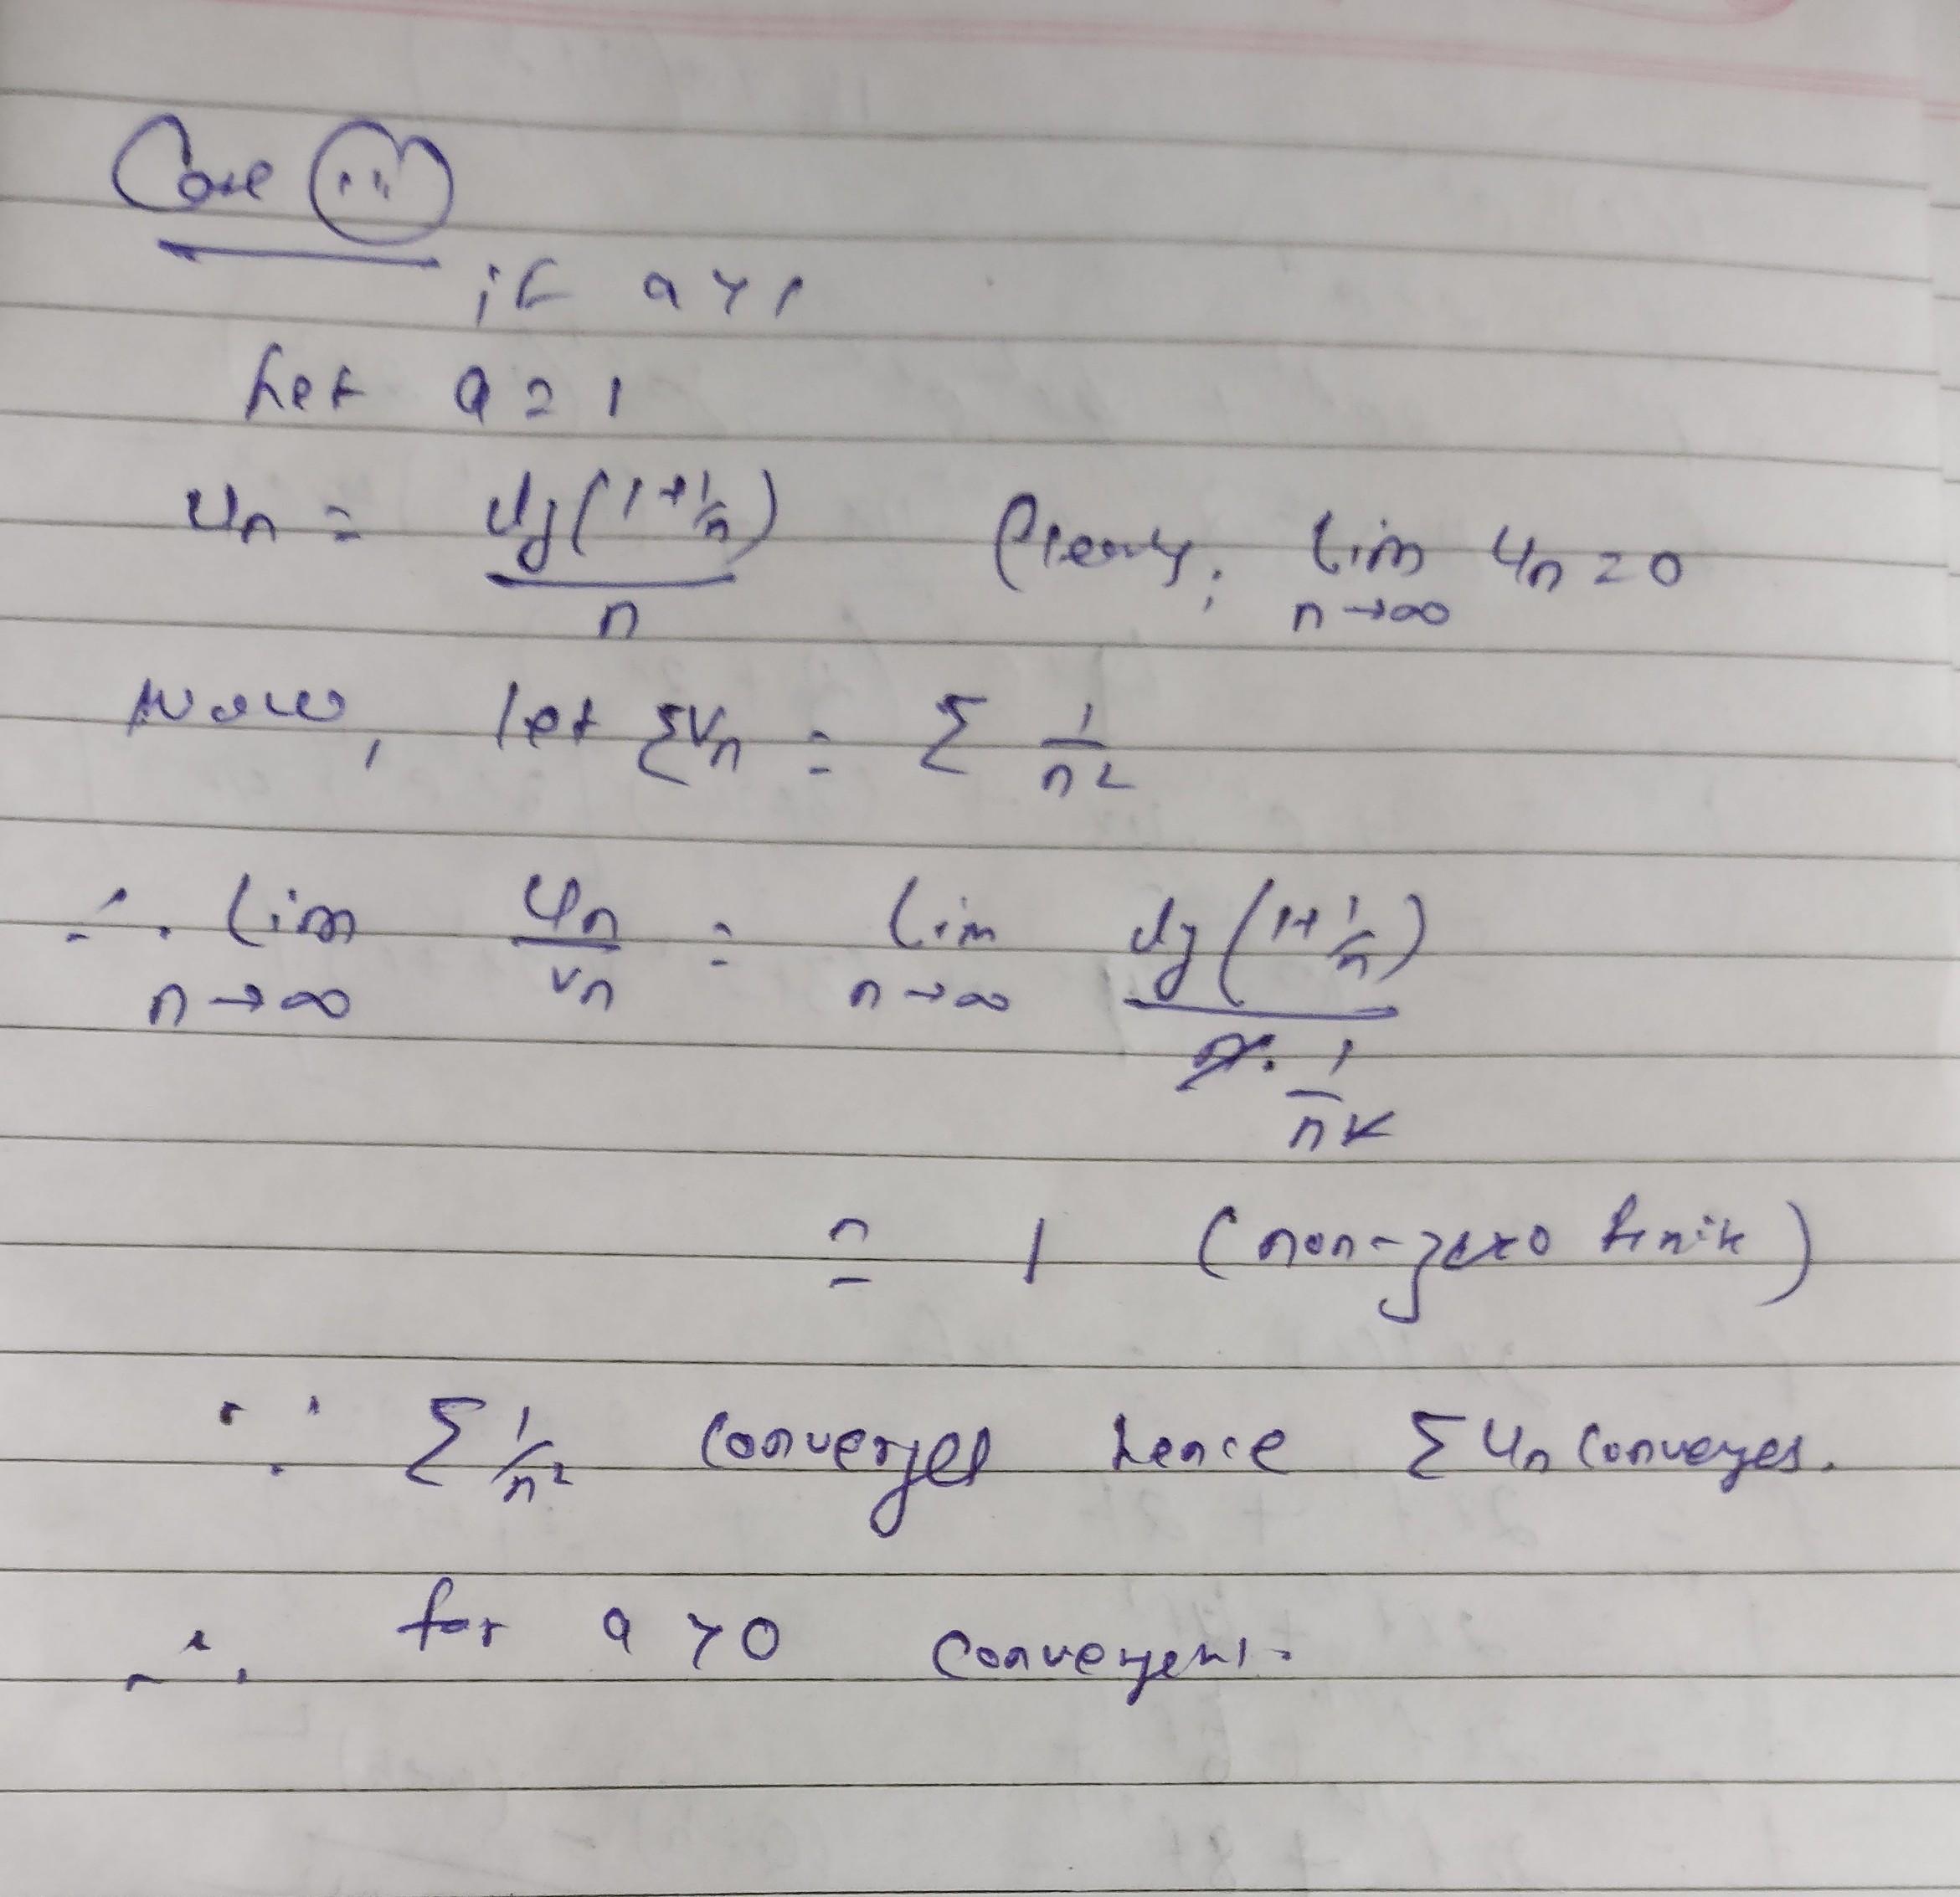 Case (ii)
if a > 1
Let a = 1
un = log(1+1/n)/n Clearly, lim n→∞ un = 0
Now, let Σvn = Σ 1/n²
∴ lim n→∞ un/vn = lim n→∞ log(1+1/n)/(n · 1/n²)
= 1 (non-zero finite)
∵ Σ 1/n² converges hence Σ un converges.
∴ for a > 0 convergent.